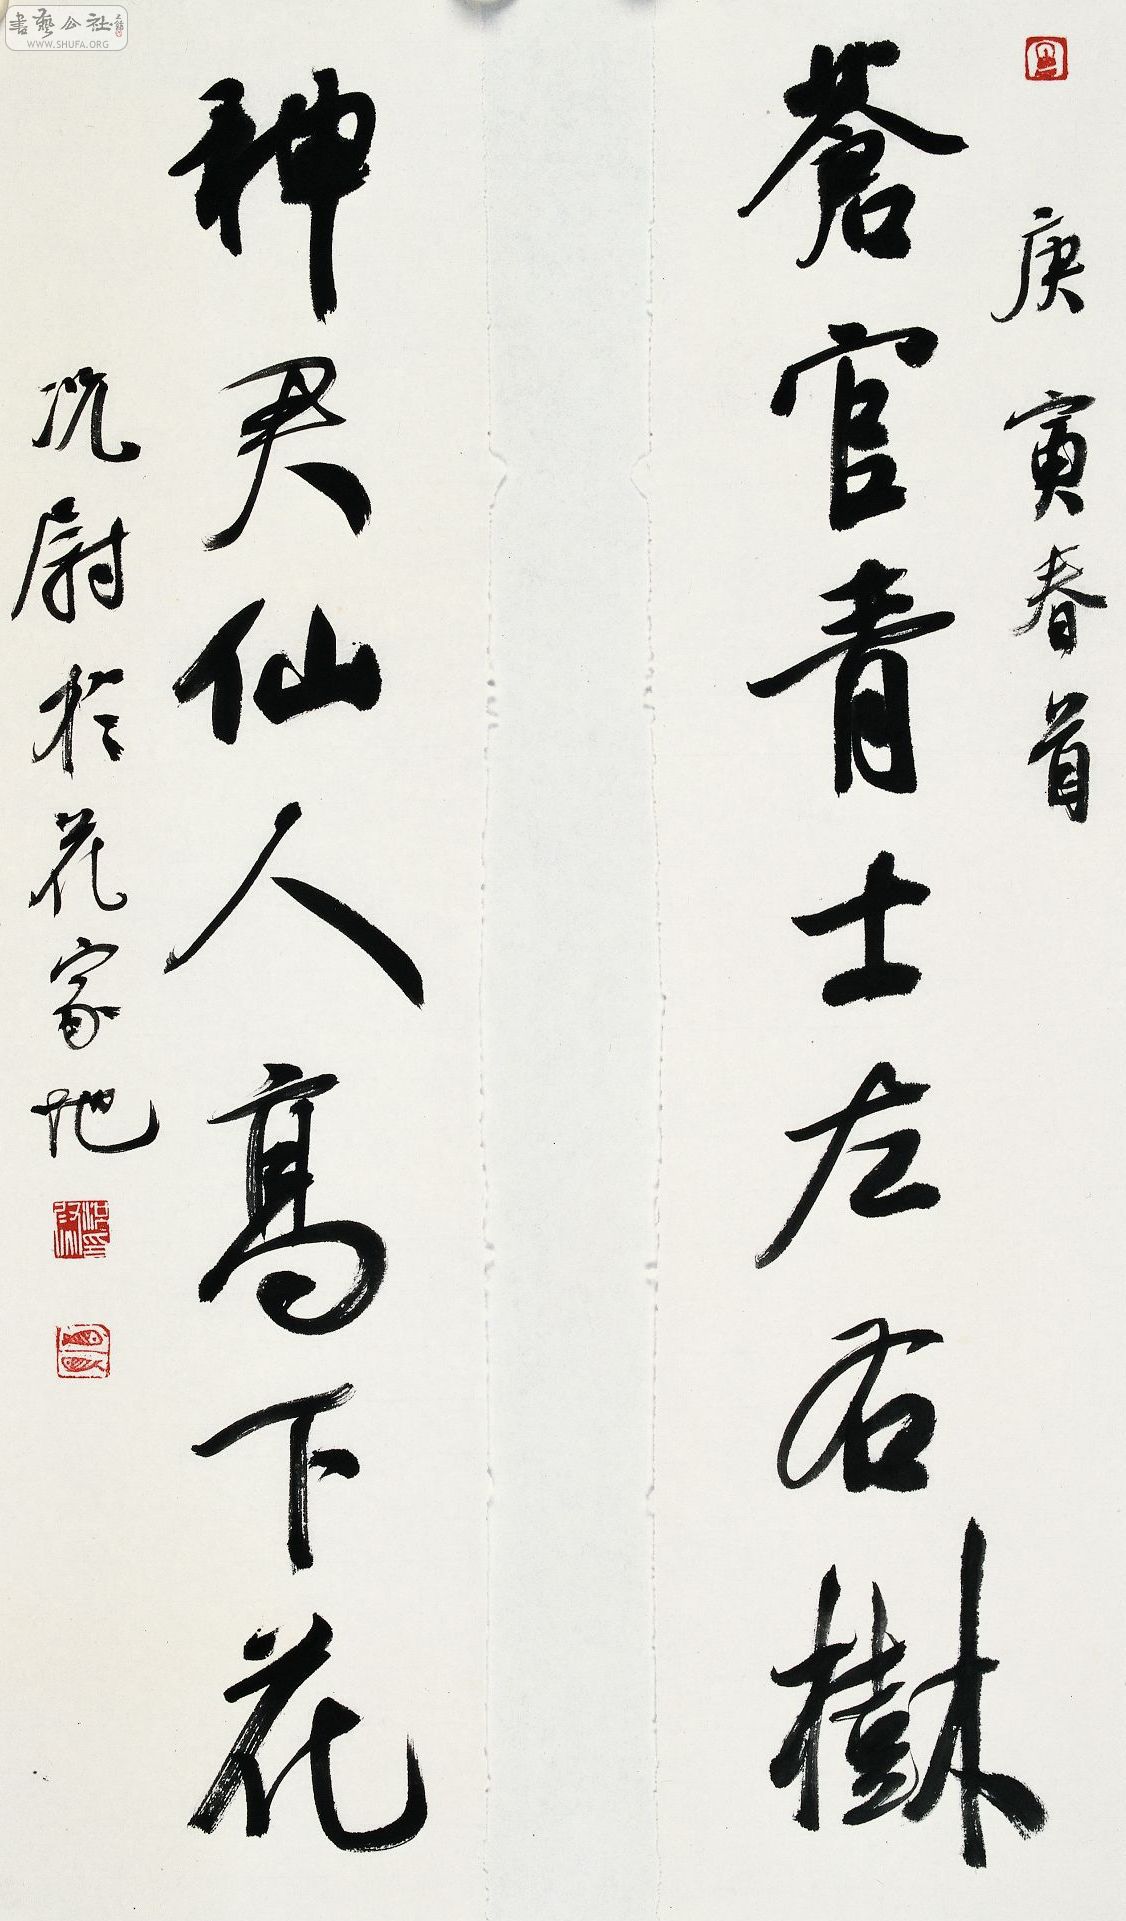 庚寅春首
蒼官青士左右樹
神君仙人高下花
沉尉於花家地
書藝公社
WWW.SHUFA.ORG